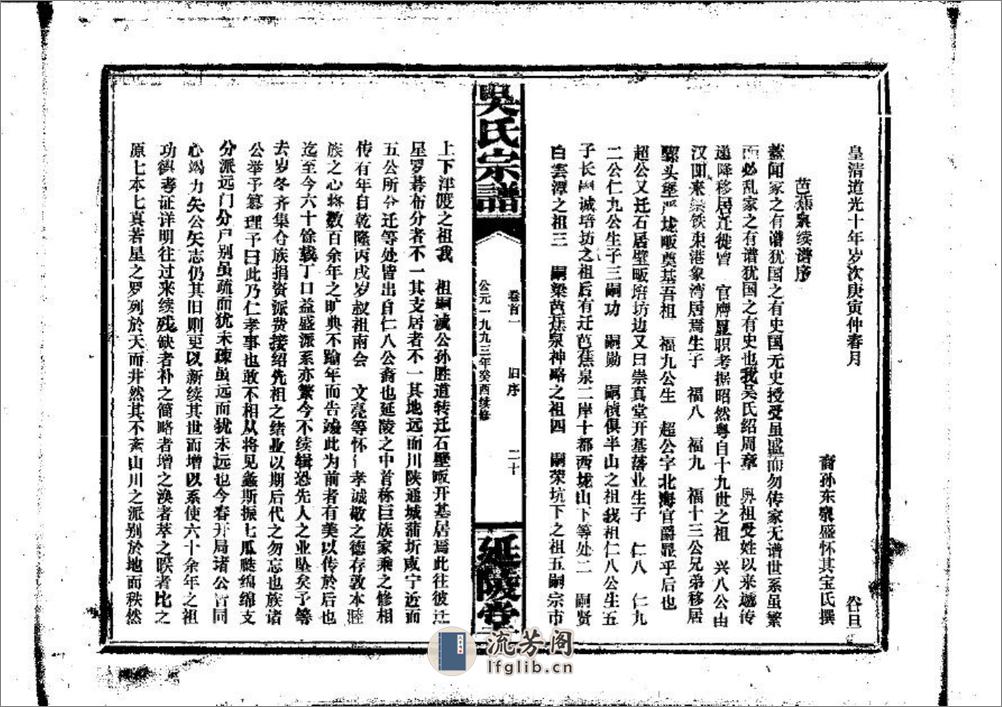 皇清道光十年岁次庚寅仲春月
裔孙东泉盛怀其宝氏撰
芭蕉泉续谱序
盖闻家之有谱犹国之有史国无史授受虽盛而勿传家无谱世系虽繁
必乱家之有谱犹国之有史也我吴氏绍周章 祖受姓以来递传
递降移居迁徙皆 官牌显职考据昭然粤自十九世之祖 兴八公由
汉 来 铁束港象湾居焉生子 福八 福九 福十三公兄弟移居
骡头堡严垅畈奠基吾祖 福九公生 超公字北海官爵最乎后也
超公又迁石居壁畈培坊边又曰崇真堂开基落业生子 仁八 仁九
二公仁九公生子三嗣功 嗣勋 嗣 俱半山之祖我祖仁八公生
子长嗣诚培坊之祖后有迁芭蕉泉二岸十都西垅山下等处二 嗣贤
白雲潭之祖三 嗣梁芭蕉泉神略之祖四 嗣荣坑下之祖五嗣宗市
吳氏宗譜
卷首一 旧序 二十
公元一九九三年癸酉续修
延陵堂
上下洋陂之祖我 祖嗣诚公孙胜道转迁石壁畈开基居焉此往彼迁
星罗碁布分者不一其支居者不一其地远而川陕通城蒲圻咸宁近而
五公所分迁等处皆出自仁八公裔也延陵之中首称巨族家乘之修相
传有年自乾隆丙戌岁叔祖南会 文亮等怀仁孝诚敬之德存敦本睦
族之心将数百余年之旷典不踰年而告竣此为前者有美以传於后也
迄至今六十馀载丁口益盛派系亦繁今不续辑恐先人之业坠矣予等
去岁冬齐集仓族捐资派费接绍先祖之绪业以期后代之勿忘也族诸
公举予纂理予曰此乃仁孝事也敢不相从将见螽斯振七瓜瓞绵绵支
分派远门分户别虽疏而犹未疎虽远而犹未远也今春开局诸公皆同
心竭力矢公矢志仍其旧则更以新续其世而增以系使六十余年之祖
功德考证详明往过来续残缺者补之简略者增之涣者萃之睽者比之
原七本七真若星之罗列於天而井然其不紊山川之派别於地而秩然
流芳阁
lfglib.cn